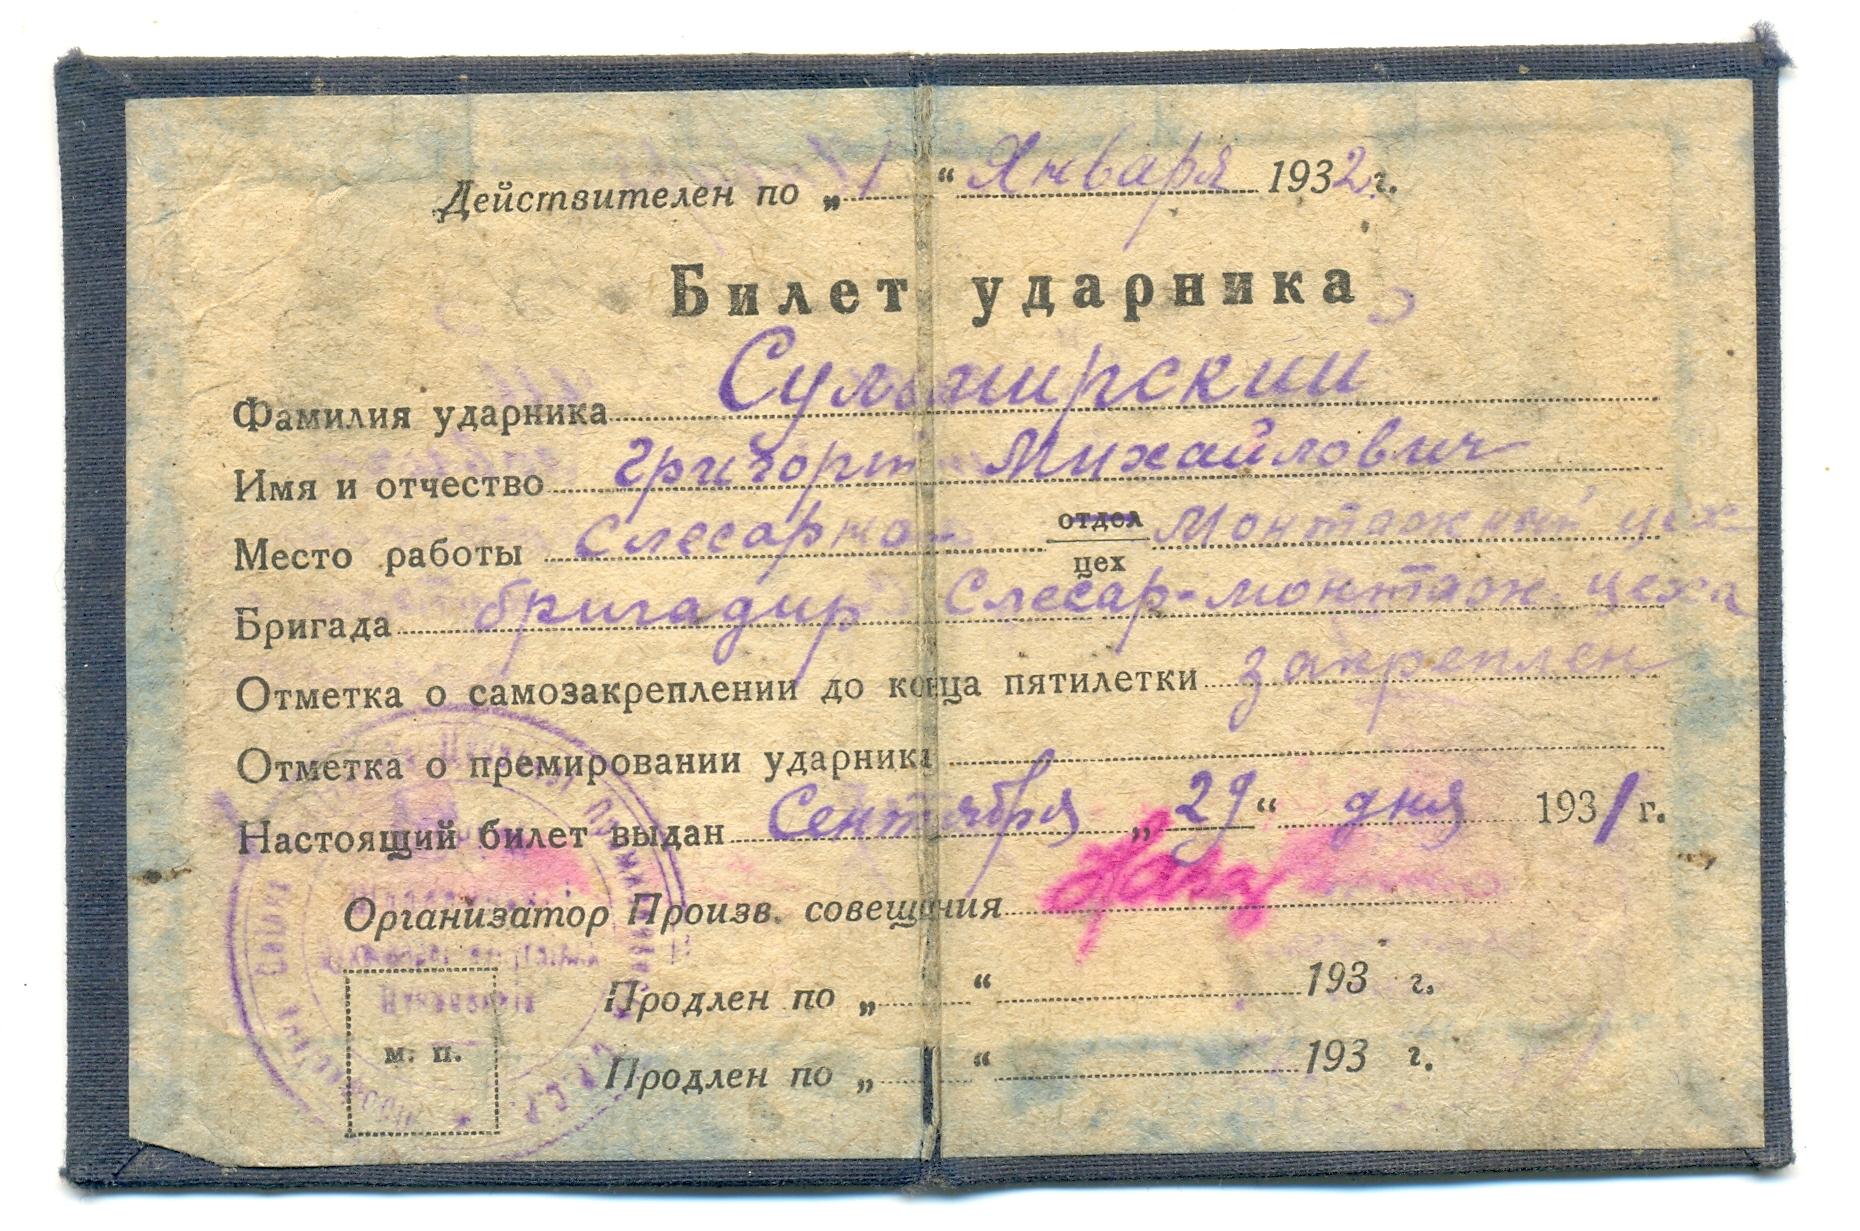 Действителен по „1“ Января 1932 г.
Билет ударника
Фамилия ударника
Имя и отчество Григорий Михайлович
Место работы Слесарная отдел Монтажный цех
цех
Бригада бригадир Слесар-монтаж. цеха
Отметка о самозакреплении до конца пятилетки закреплен
Отметка о премировании ударника
Настоящий билет выдан Сентября „29“ дня 1931 г.
Организатор Произв. совещания
Продлен по „ “ 193 г.
м. п.
Продлен по „ “ 193 г.